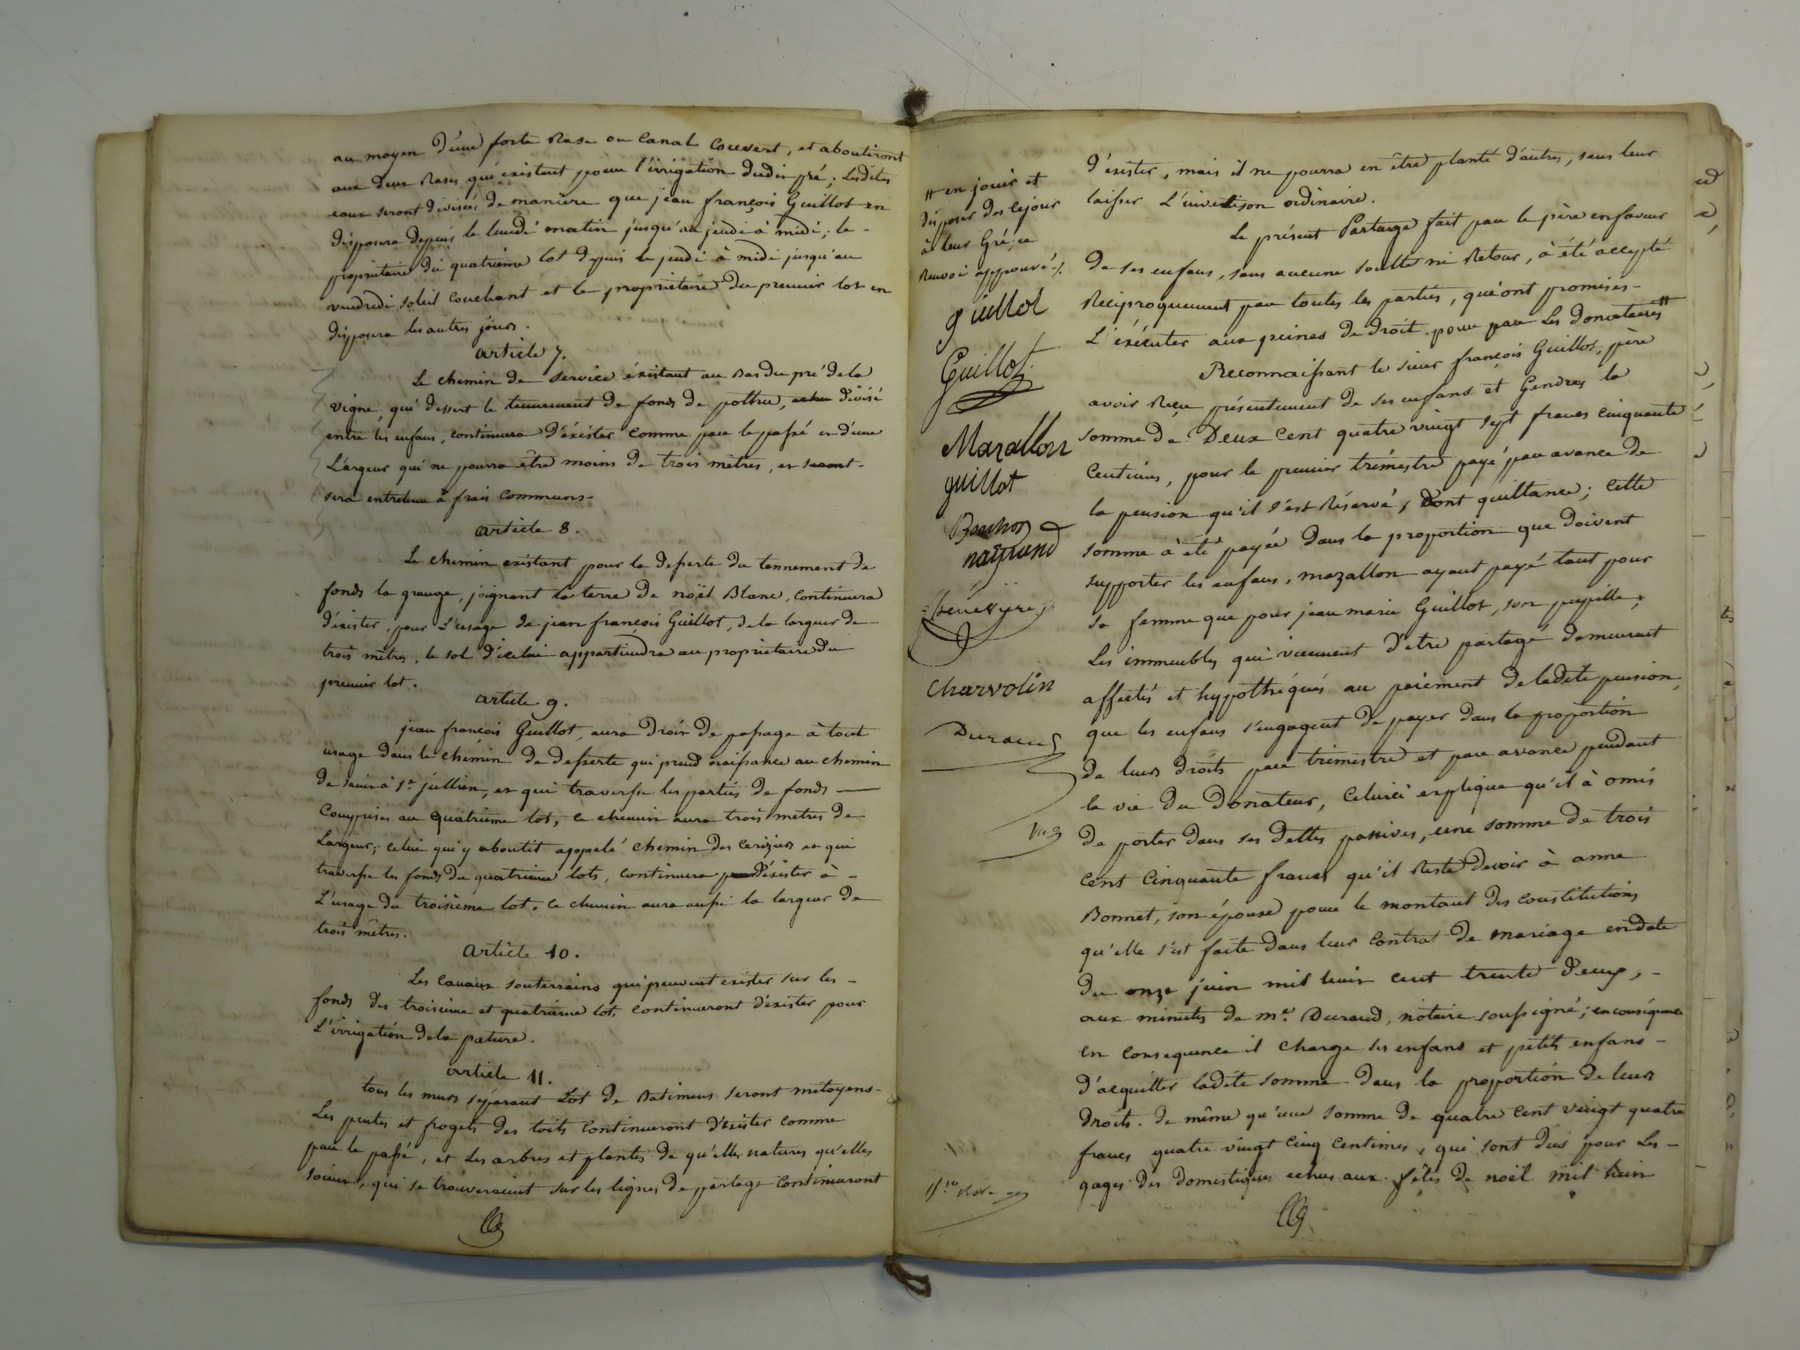 au moyen d'une forte Rase ou Canal Couvert, et aboutiront
aux deux Rases qui existent pour l'irrigation dudit pré; Lesdites
eaux seront divisées de manière que jean françois Guillot en
disposera depuis le lundi matin jusqu'au jeudi à midi; le-
propriétaire du quatrième lot depuis le jeudi à midi jusqu'au
vendredi soleil couchant et le propriétaire du premier lot en
disposera les autres jours.
article 7.
Le chemin de service éxistant au Bas du pré de la
vigne, qui dessert le tennement de fonds de pothu, divisé
entre les enfans, continuera d'éxister comme par le passé et d'une
Largeur qui ne pourra être moins de trois mètres, et
sera entretenu à frais Communs-
article 8.
Le chemin existant pour la deserte du tennement de
fonds la grange, joignant la terre de noël Blanc, Continuera
d'éxister, pour L'usage de jean françois Guillot, de la largeur de
trois mètres, le sol d'icelui appartiendra au propriétaire du
premier lot.
article 9.
jean françois Guillot, aura droit de passage à tout
usage dans le chemin de desserte qui prend naissance au chemin
de à St jullien, et qui traverse les parties de fonds -
Comprises au quatrième lot, ce chemin aura trois mètres de
Largeur; celui qui y aboutit appelé chemin des Cerisiers et qui
traverse les fonds du quatrième lots, continuera d'éxister à -
L'usage du troisième lot, ce chemin aura aussi la largeur de
trois mètres.
article 10.
Les Canaux souterrains qui peuvent exister sur les -
fonds des troisième et quatrième lot, continueront d'exister pour
L'irrigation de la pature.
article 11.
tous les murs séparant Lot de Batimens seront mitoyens-
Les pentes et frogets des toits Continueront d'exister comme
par le passé, et Les arbres et plantes de qu'elles natures qu'elles
soient, qui se trouveraient sur les lignes de partage Continueront
d'éxister, mais il ne pourra en être planté d'autres, sans leur
laisser L'invétison ordinaire.
Le présent Partage fait par le père enfaveur
de ses enfans, sans aucune soulte ni Retour, à été accepté
Réciproquement par toutes les parties, qui ont promises-
L'éxécuter aux peines de droit. pour par Les Donataires #
Reconnaissant le sieur françois Guillot, père
avoir Reçu présentement de ses enfans et Gendres la
somme de Deux Cent quatre vingt sept francs Cinquante
Centimes, pour le premier trimestre payé par avance de
la pension qu'il s'est Réservé, Dont quittance; Cette
somme à été payée Dans la proportion que doivent
supporter les enfans, mazallon ayant payé tant pour
sa femme que pour jean marie Guillot, son pupille;
Les immeubles qui viennent d'etre partagé demeurent
affectés et hypothéqués au paiement de ladite pension,
que les enfans s'engagent de payer dans la proportion
de leurs droits par trimestre et par avance pendant
la vie du Donateur, Celuici explique qu'il à omis
de porter dans ses dettes passives, une somme de trois
Cent Cinquante francs qu'il Reste Devoir à anne
Bonnet, son épouse pour le montant des Constitutions
qu'elle s'est faite dans leur Contrat de mariage endate
du onze juin mil huit cent trente deux, -
aux minutes de me. Durand, notaire soussigné; en conséquence
en conséquence il charge ses enfans et petits enfans-
d'acquitter ladite somme dans la proportion de leurs
droits. de même qu'une somme de quatre cent vingt quatre
francs quatre vingt cinq centimes, qui sont dus pour Les-
gages des domestiques echus aux fêtes de noël mil huit
# en jouir et
disposer des cejour
à leur Gré: ce
Renvoi approuvé ./.
guillot
Guillot
Mazallon
guillot
Bouchos
naytrand
Charvolin
Durand